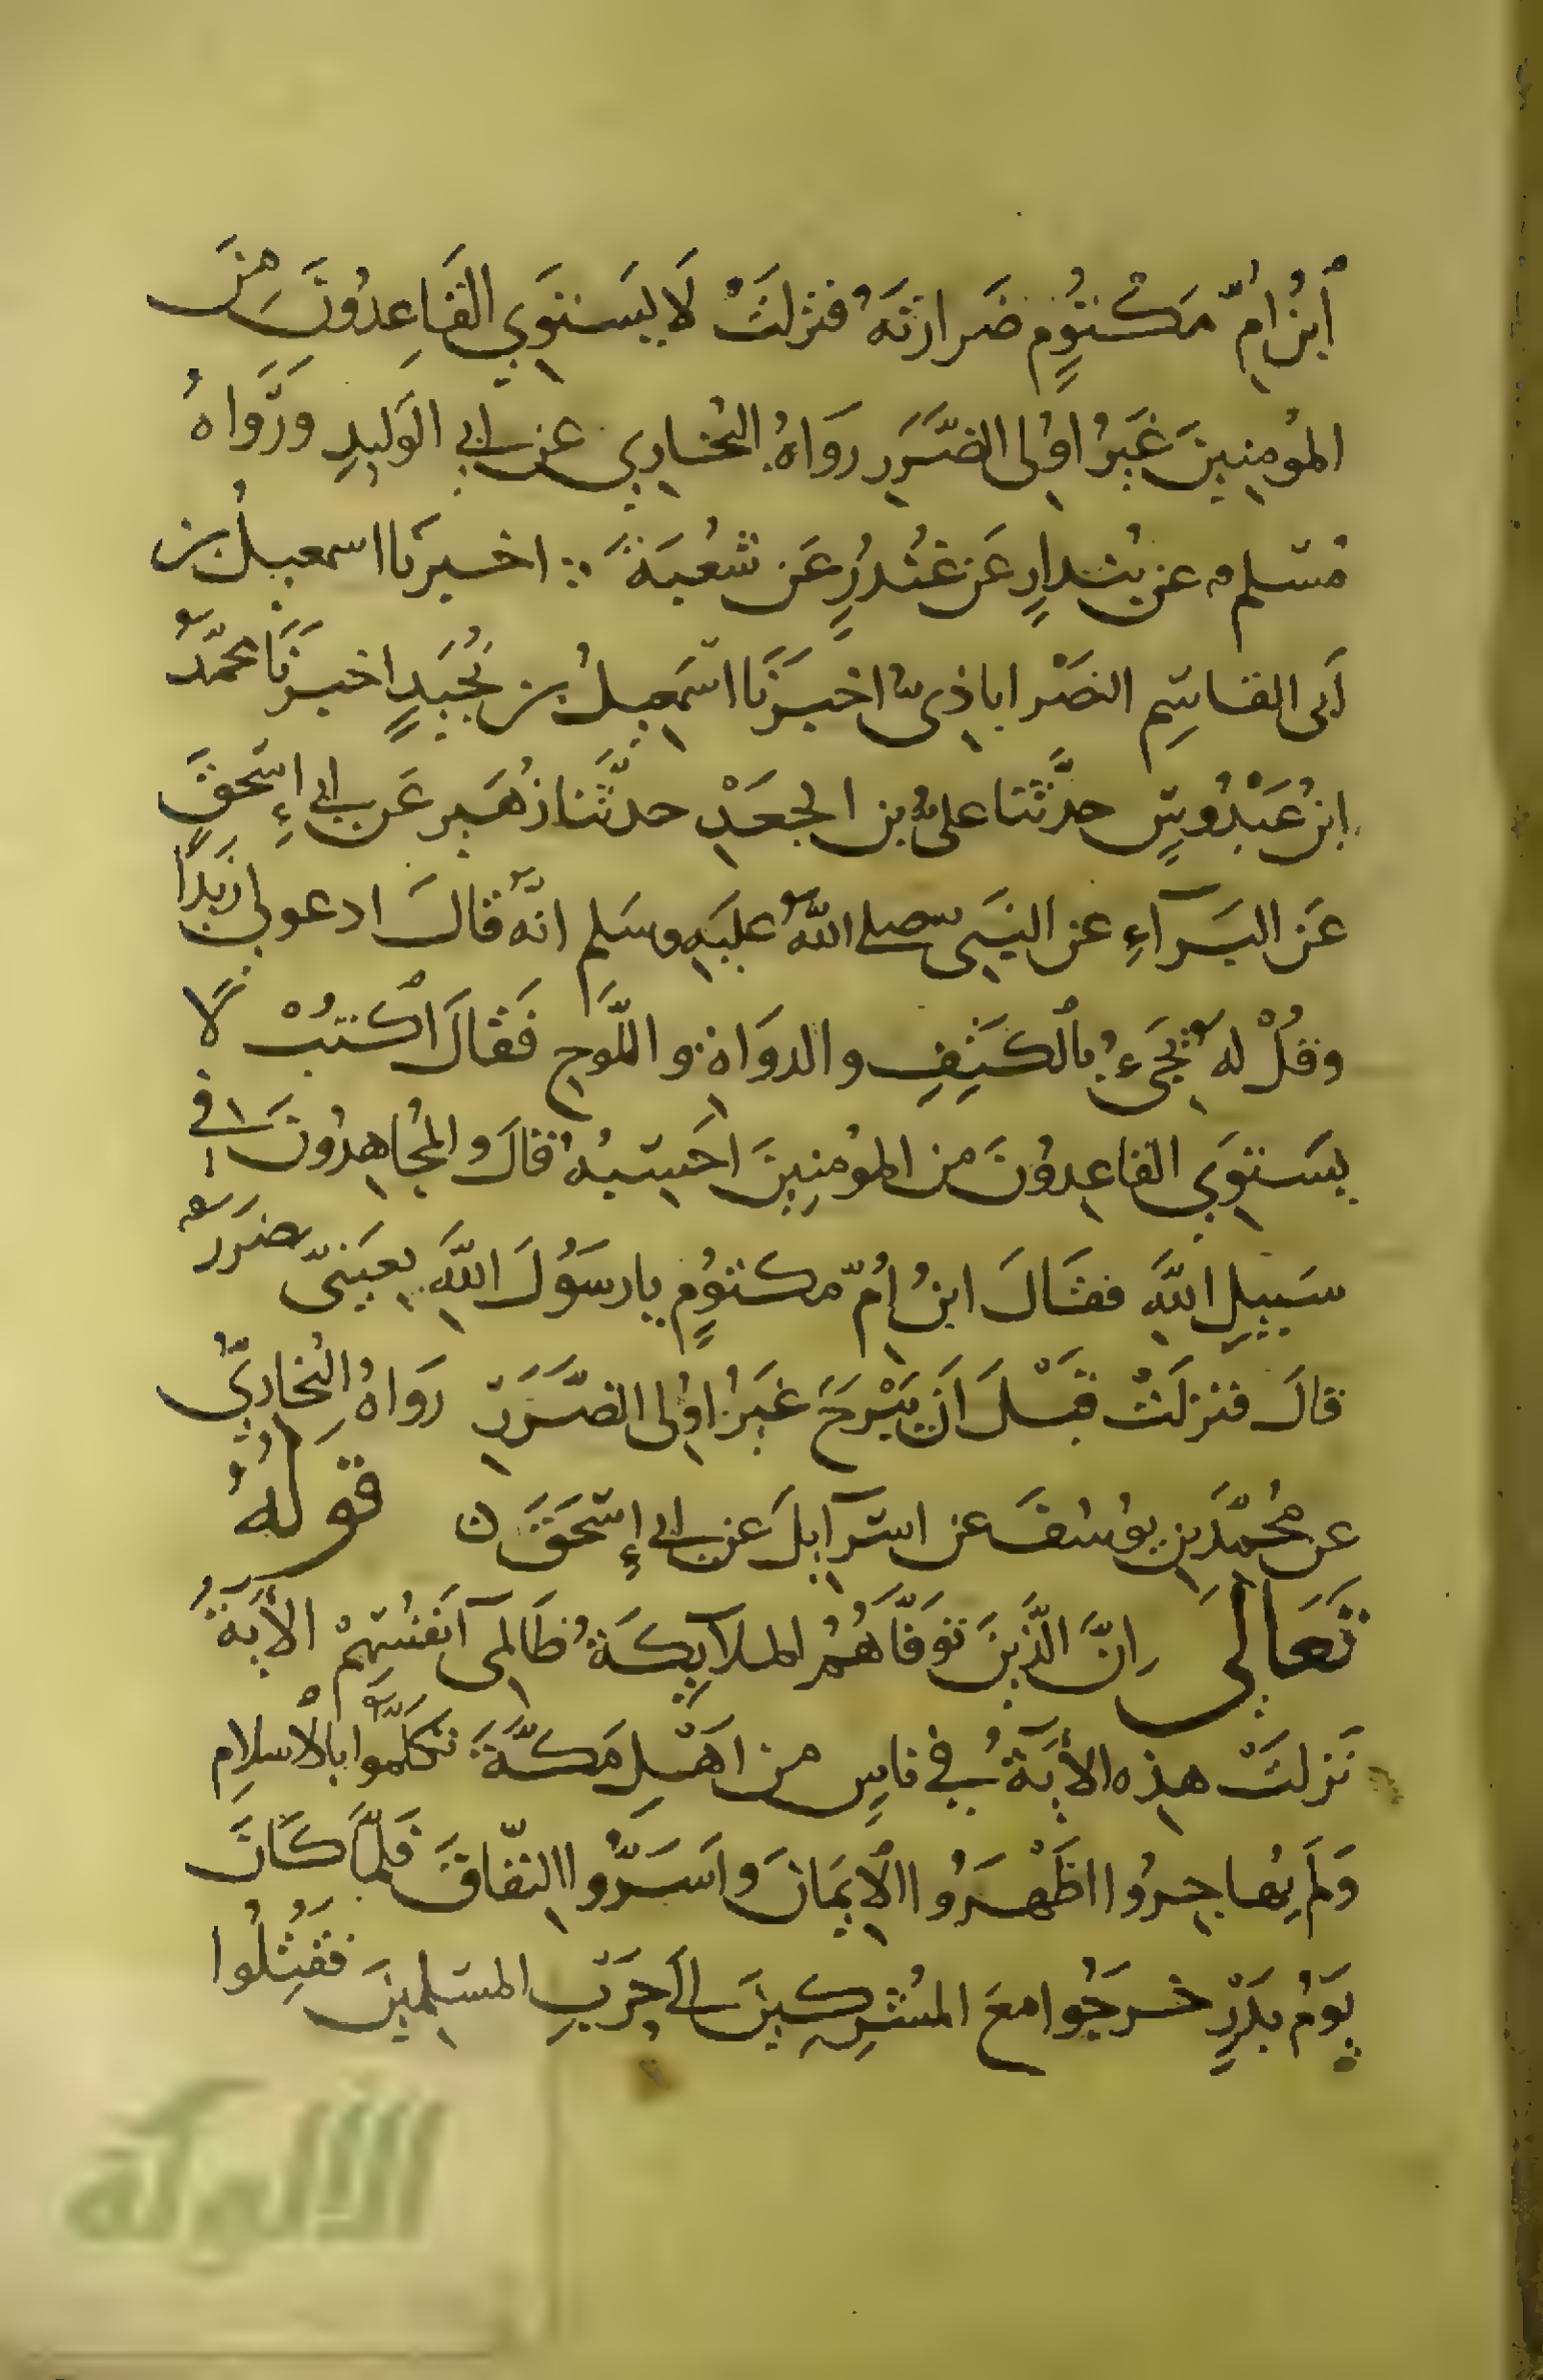 ابْنُ امِّ مَكْتُومٍ ضَرارَتَهُ فنزلَتْ لَا يَسْتَوِي القَاعِدُونَ مِنَ
المُومِنِينَ غَيرُ اوُلى الضَّرَرِ رَوَاهُ البُخارِي عن ابي الوَليدِ ورَوَاهُ
مُسْلم عن بُندارٍ عَن غُنْدُرٍ عَن شُعْبَةَ اخبرَنا اسمعيلُ بن
أبى القاسِم النصْراباذىُّ اخبَرَنَا اسْمَعِيلُ بن نُجَيدٍ اخبرنَا محمَّدُ
ابنُ عَبْدُوسٍ حدَّثَنا علىُّ بن الجعَدْ حدثَّنَا زُهَير عَن ابي اسْحقَ
عَن البَرَآءِ عن النبىّ صلى اللهُ عليَهِ وسَلم انَّهُ قالَ ادعو لي زَيدًا
وقُلْ لهُ يجَىءُ بالكَتِفِ والدوَاةِ واللَّوحِ فَقالَ اكْتُبْ لَا
يسَتوِي القاعِدُونَ من المُومِنِينَ احسِبُهُ قالَ والمُجاهِدُونَ في
سَبِيلِ اللهِ فقَالَ ابنُ اُمِّ مكتوُمٍ يا رسَوُلَ اللهِ بعَينىّ ضَرَرٌ
قالَ فنزلَتْ قَبْلَ اَن يَبْرَحَ غَيرُ اوُلى الضَّرَرِ رَوَاهُ البُخارِيُّ
عن محُمَّدَ بنِ يوسُفَ عن اسْرآيلَ عن ابي إسْحَقَ ن قَولهُ
تَعَالَى اِنَّ الَّذينَ توَفَّاهُمُ الملآيكَةُ ظَالِمى اَنفُسِهِمْ الآيَةُ
نَزلَتْ هذِه الآيَةُ في ناسٍ من اهْلِ مَكَّةَ تَكلَّمُوا بالاْسلامِ
وَلَم يُهاجِرُوا اظْهَرُوا الاِيمَانَ واَسَرُّوا النِّفاقَ فَلمَّا كَانَ
يَوْمُ بَدْرٍ خرَجُوا معَ المُشْرِكينَ الى حَرْبِ المسْلِمينَ فقُتِلُوا
الألوكة